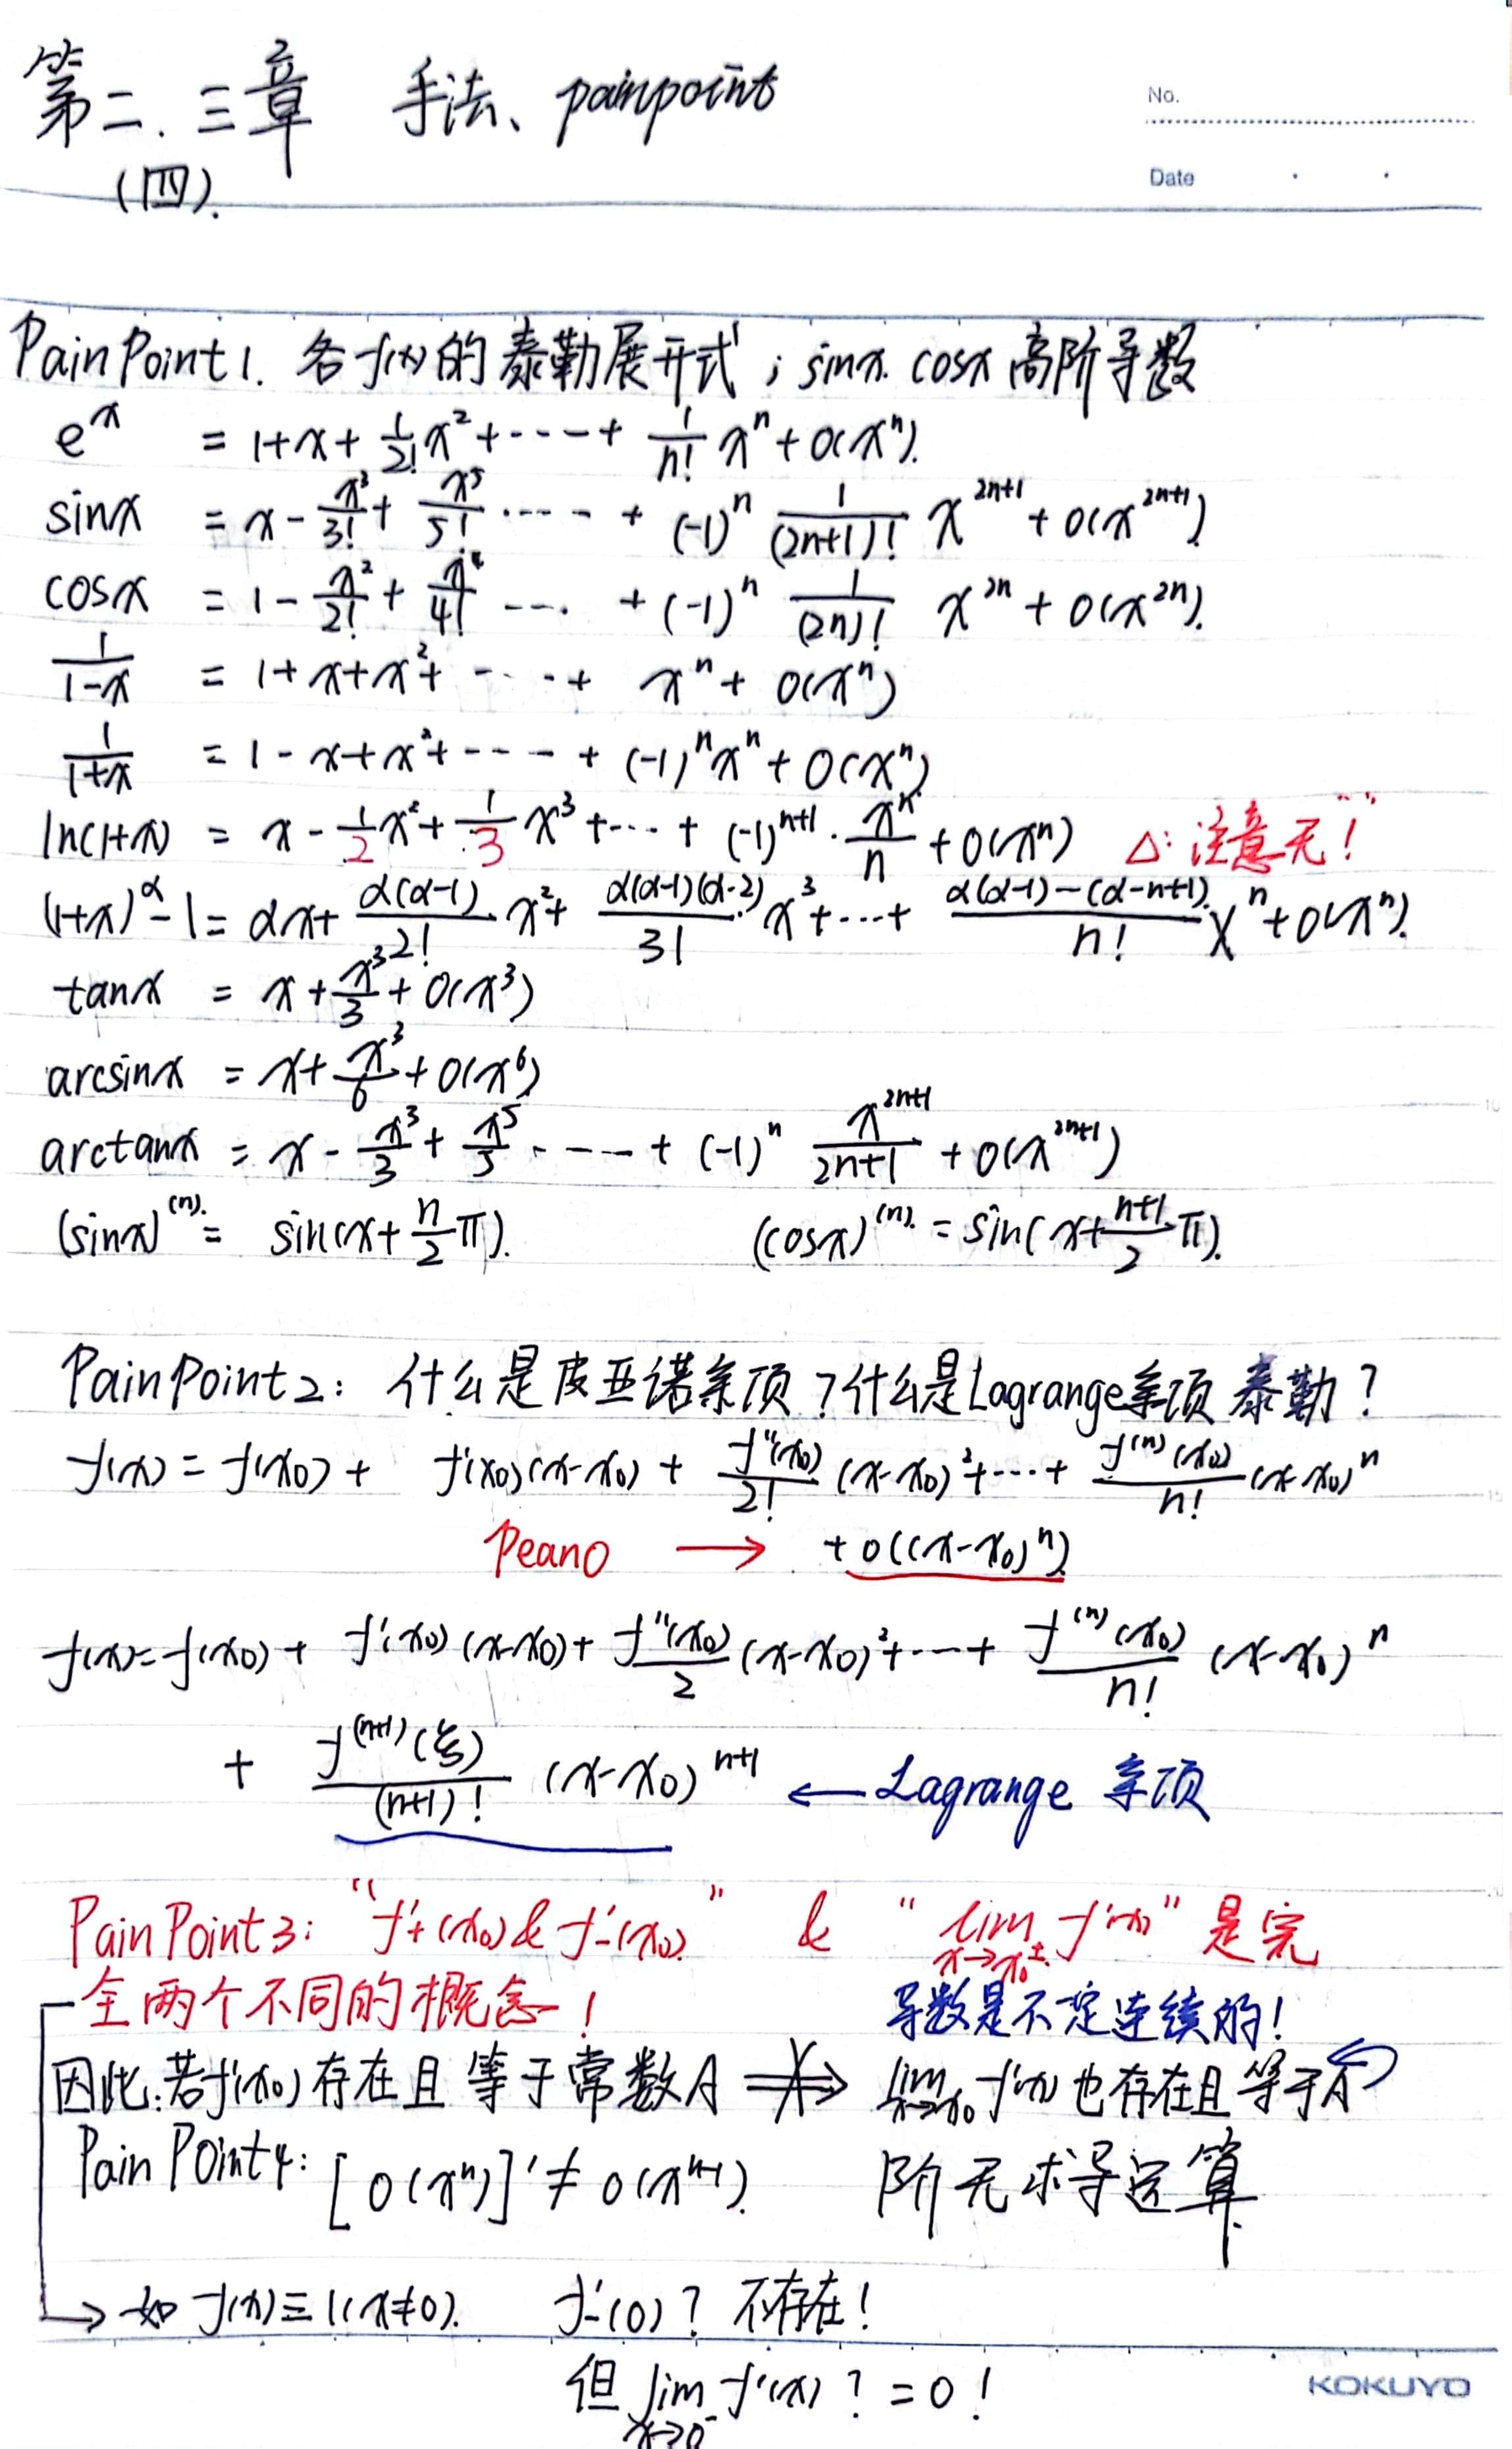 第二、三章 手法、painpoint
(四).
No.
Date
PainPoint1. 各f(x)的泰勒展开式；sinx. cosx 高阶导数
e^x = 1+x+\frac{1}{2!}x^2+----+\frac{1}{n!}x^n+o(x^n).
sinx = x-\frac{x^3}{3!}+\frac{x^5}{5!}----+(-1)^n\frac{1}{(2n+1)!}x^{2n+1}+o(x^{2n+1})
cosx = 1-\frac{x^2}{2!}+\frac{x^4}{4!}---.+(-1)^n\frac{1}{(2n)!}x^{2n}+o(x^{2n}).
\frac{1}{1-x} = 1+x+x^2+----+x^n+o(x^n)
\frac{1}{1+x} = 1-x+x^2+----+(-1)^n x^n+o(x^n)
ln(1+x) = x-\frac{1}{2}x^2+\frac{1}{3}x^3+---+(-1)^{n+1}·\frac{x^n}{n}+o(x^n) △: 注意无"!"
(1+x)^α-1=αx+\frac{α(α-1)}{2!}x^2+\frac{α(α-1)(α-2)}{3!}x^3+---+\frac{α(α-1)--(α-n+1)}{n!}x^n+o(x^n).
tanx = x+\frac{x^3}{3}+o(x^3)
arcsinx = x+\frac{x^3}{6}+o(x^6)
arctanx = x-\frac{x^3}{3}+\frac{x^5}{5}----+(-1)^n\frac{x^{2n+1}}{2n+1}+o(x^{2n+1})
(sinx)^{(n)}= sin(x+\frac{n}{2}π). (cosx)^{(n)}=sin(x+\frac{n+1}{2}π).
PainPoint2: 什么是皮亚诺余项？什么是Lagrange余项 泰勒？
f(x)=f(x0)+ f'(x0)(x-x0)+\frac{f''(x0)}{2!}(x-x0)^2+---+\frac{f^{(n)}(x0)}{n!}(x-x0)^n
Peano → +o((x-x0)^n)
f(x)=f(x0)+ f'(x0)(x-x0)+\frac{f''(x0)}{2}(x-x0)^2+---+\frac{f^{(n)}(x0)}{n!}(x-x0)^n
+\frac{f^{(n+1)}(ξ)}{(n+1)!}(x-x0)^{n+1} ← Lagrange 余项
PainPoint3: "f'+(x0)& f'-(x0)" & "lim_{x→x0^±} f'(x)" 是完
全两个不同的概念！ 导数是不一定连续的！
因此:若f'(x0)存在且等于常数A ⇏ lim_{x→x0} f'(x)也存在且等于A
PainPoint4: [o(x^n)]' ≠ o(x^{n-1}). 阶无求导运算.
→ 如 f(x)≡1(x≠0). f'-(0)？不存在！
但 lim_{x→0^-} f'(x)？=0！
KOKUYO